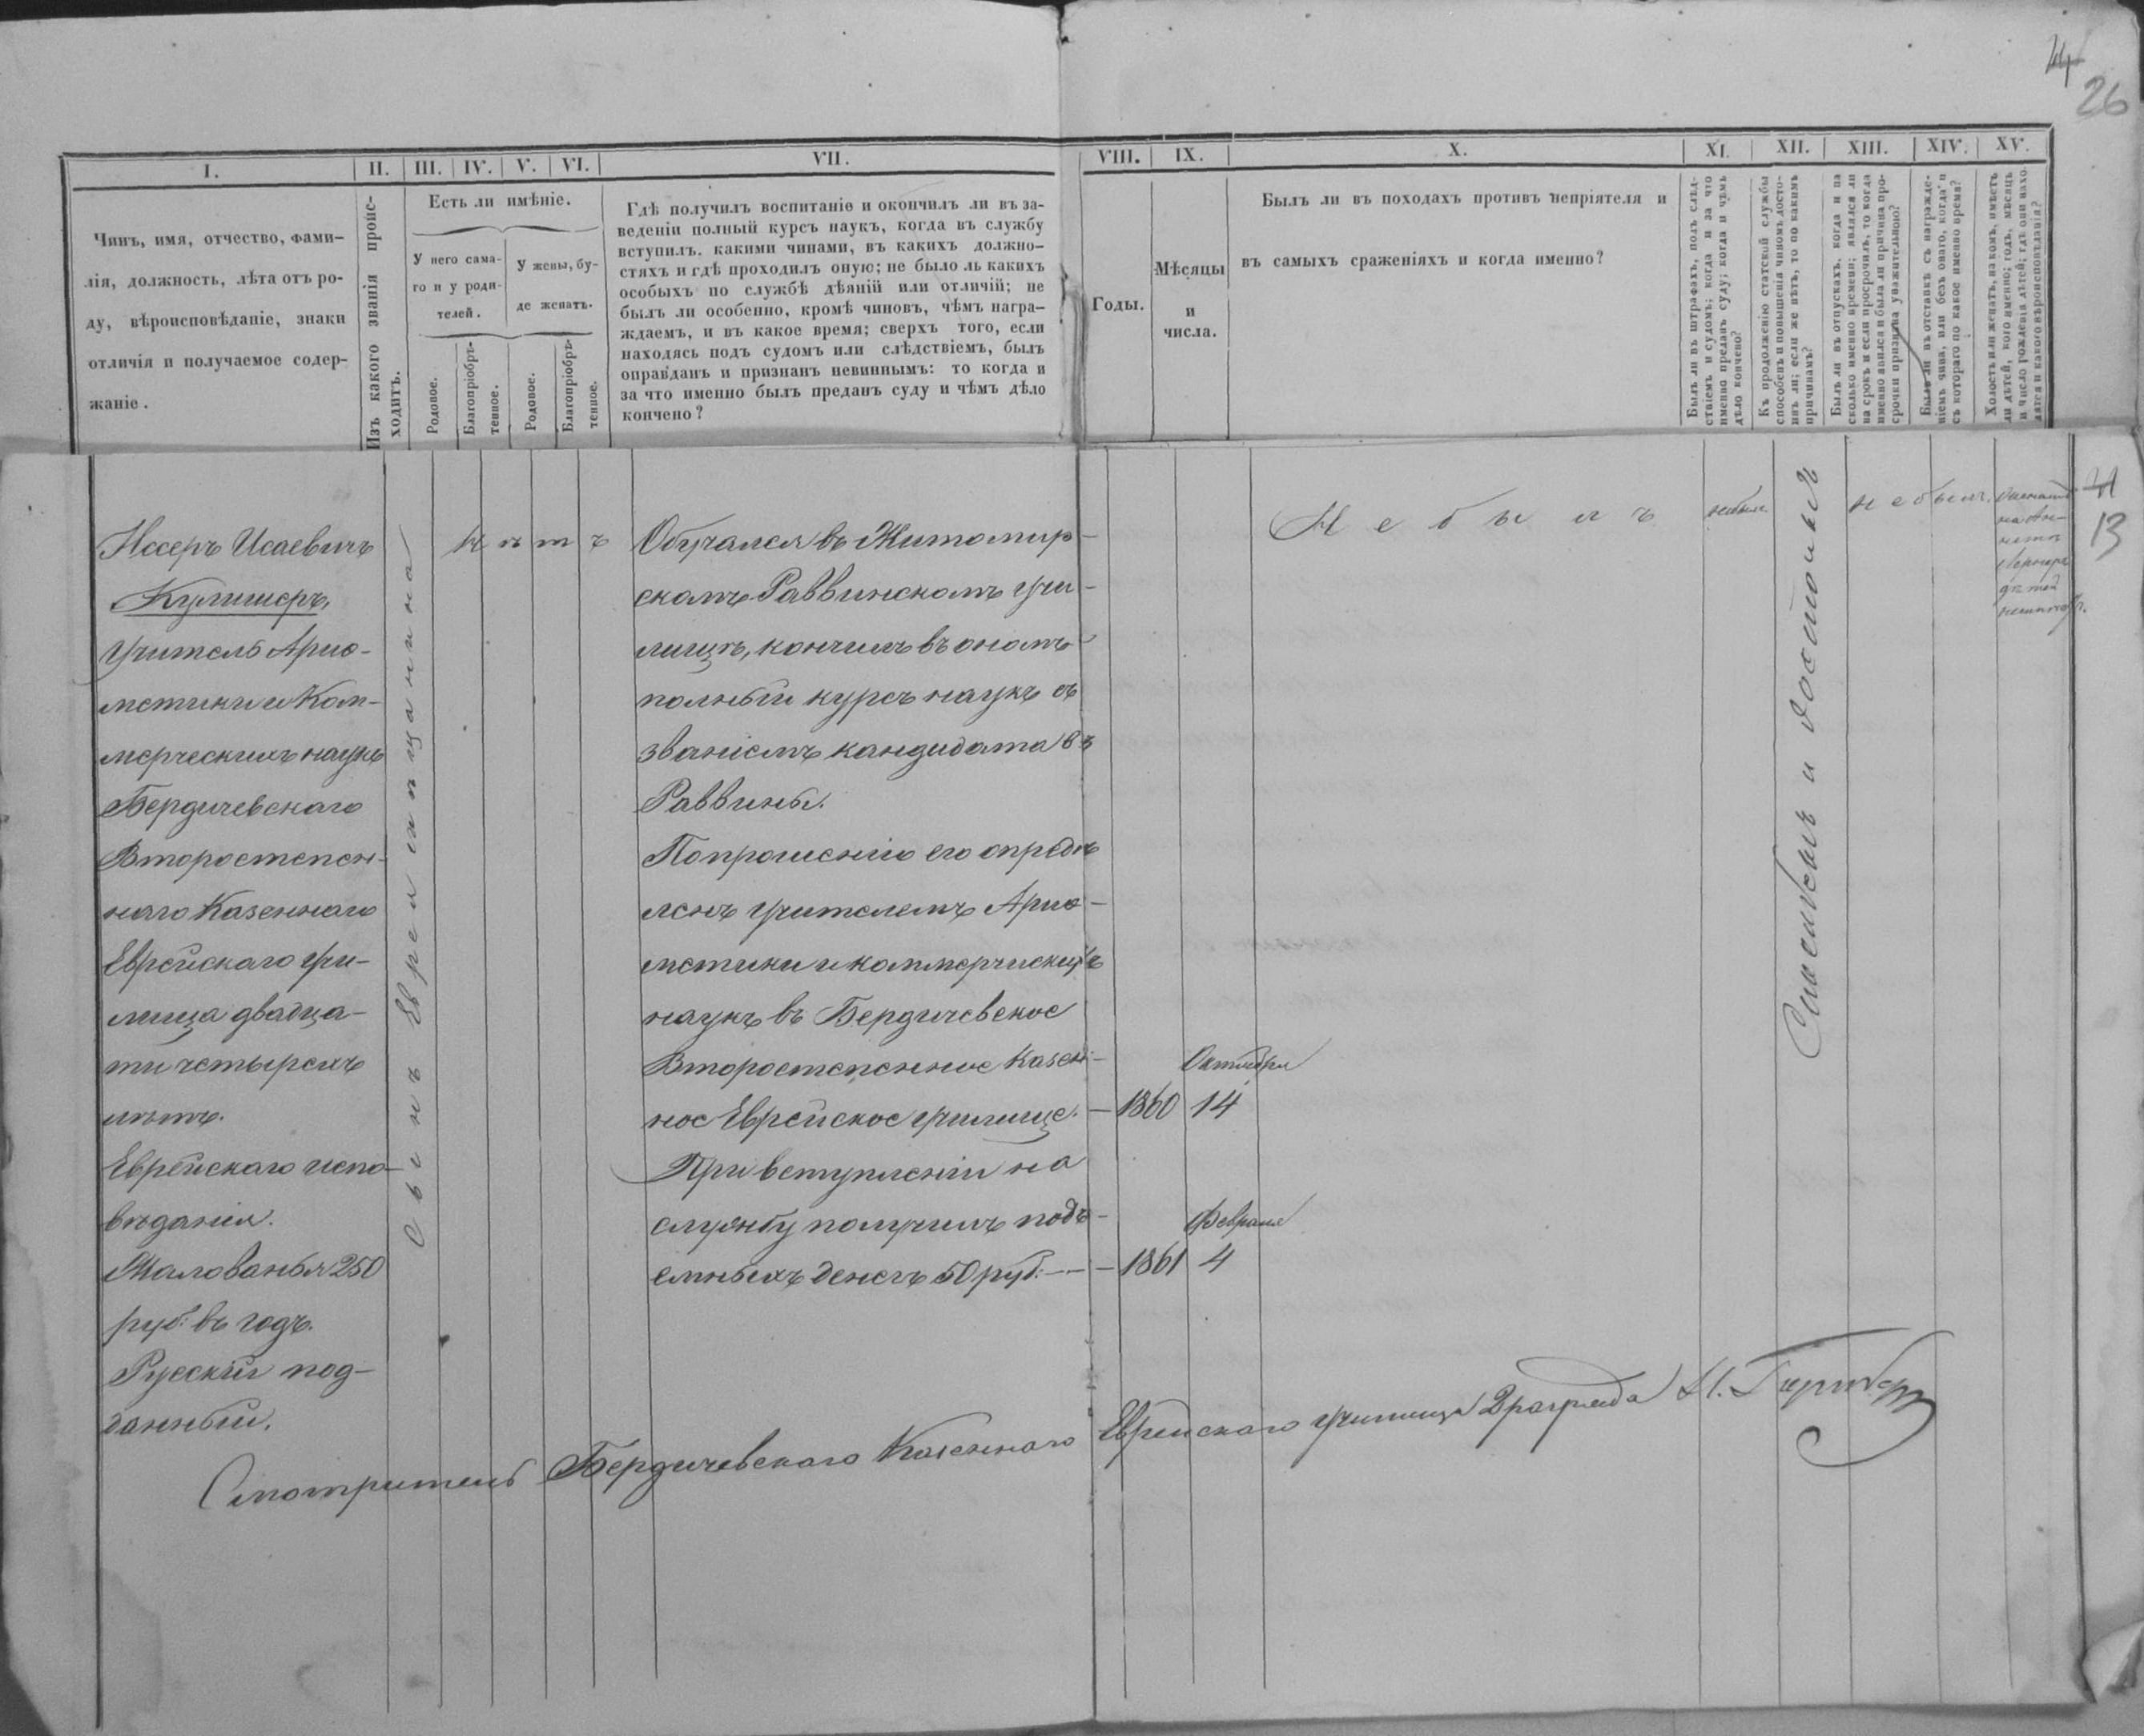 44
26
I.
II.
III.
IV.
V.
VI.
VII.
VIII.
IX.
X.
XI.
XII.
XIII.
XIV.
XV.
Чинъ, имя, отчество, фами-
лія, должность, лѣта отъ ро-
ду, вѣроисповѣданіе, знаки
отличія и получаемое содер-
жаніе.
Изъ какого званія проис-
ходитъ.
Есть ли имѣніе.
У него сама-
го и у роди-
телей.
У жены, бу-
де женатъ.
Родовое.
Благопріобрѣ-
тенное.
Родовое.
Благопріобрѣ-
тенное.
Гдѣ получилъ воспитаніе и окончилъ ли въ за-
веденіи полный курсъ наукъ, когда въ службу
вступилъ, какими чинами, въ какихъ должно-
стяхъ и гдѣ проходилъ оную; не было ль какихъ
особыхъ по службѣ дѣяній или отличій; не
былъ ли особенно, кромѣ чиновъ, чѣмъ награ-
ждаемъ, и въ какое время; сверхъ того, если
находясь подъ судомъ или слѣдствіемъ, былъ
оправданъ и признанъ невиннымъ: то когда и
за что именно былъ преданъ суду и чѣмъ дѣло
кончено?
Годы.
Мѣсяцы
и
числа.
Былъ ли въ походахъ противъ непріятеля и
въ самыхъ сраженіяхъ и когда именно?
Былъ ли въ штрафахъ, подъ слѣд-
ствіемъ и судомъ; когда и за что
именно преданъ суду; когда и чѣмъ
дѣло кончено?
Къ продолженію статской службы
способенъ и повышенія чиномъ досто-
инъ ли; если же нѣтъ, то по какимъ
причинамъ?
Былъ ли въ отпускахъ, когда и на
сколько именно времени; являлся ли
на срокъ и если просрочилъ, то когда
именно явился и была ли причина про-
срочки признана уважительною?
Былъ ли въ отставкѣ съ награжде-
ніемъ чина, или безъ онаго, когда и
съ котораго по какое именно время?
Холостъ или женатъ, на комъ, имѣетъ
ли дѣтей, кого именно; годъ, мѣсяцъ
и число рожденія дѣтей; гдѣ они нахо-
дятся и какого вѣроисповѣданія?
Иссеръ Исаевичъ
Кулишеръ,
Учитель Ариѳ-
метики и Ком-
мерческихъ наукъ
Бердичевскаго
Второстепен-
наго Казеннаго
Еврейскаго учи-
лища двадца-
ти четырехъ
лѣтъ.
Еврейскаго испо-
вѣданія.
Жалованья 250
руб: въ годъ.
Русскій под-
данный.
Сынъ Еврея мѣщанина
Нѣтъ
Обучался въ Житомир-
скомъ Раввинскомъ учи-
лищѣ, кончилъ въ ономъ
полный курсъ наукъ съ
званіемъ кандидата въ
Раввины.
По прошенію его опредѣ
ленъ учителемъ Ариѳ-
метики и коммерчискихъ
наукъ въ Бердичевское
Второстепенное Казен-
ное Еврейское училище. — 1860
Октября
14
При вступленіи на
службу получилъ подъ-
емныхъ денегъ 50 руб: — — 1861
Февраля
4
Не былъ
небылъ
Способенъ и достоинъ
не былъ.
женатъ
дѣтей
неимѣетъ.
13
Смотритель Бердичевскаго Казеннаго Еврейскаго училища